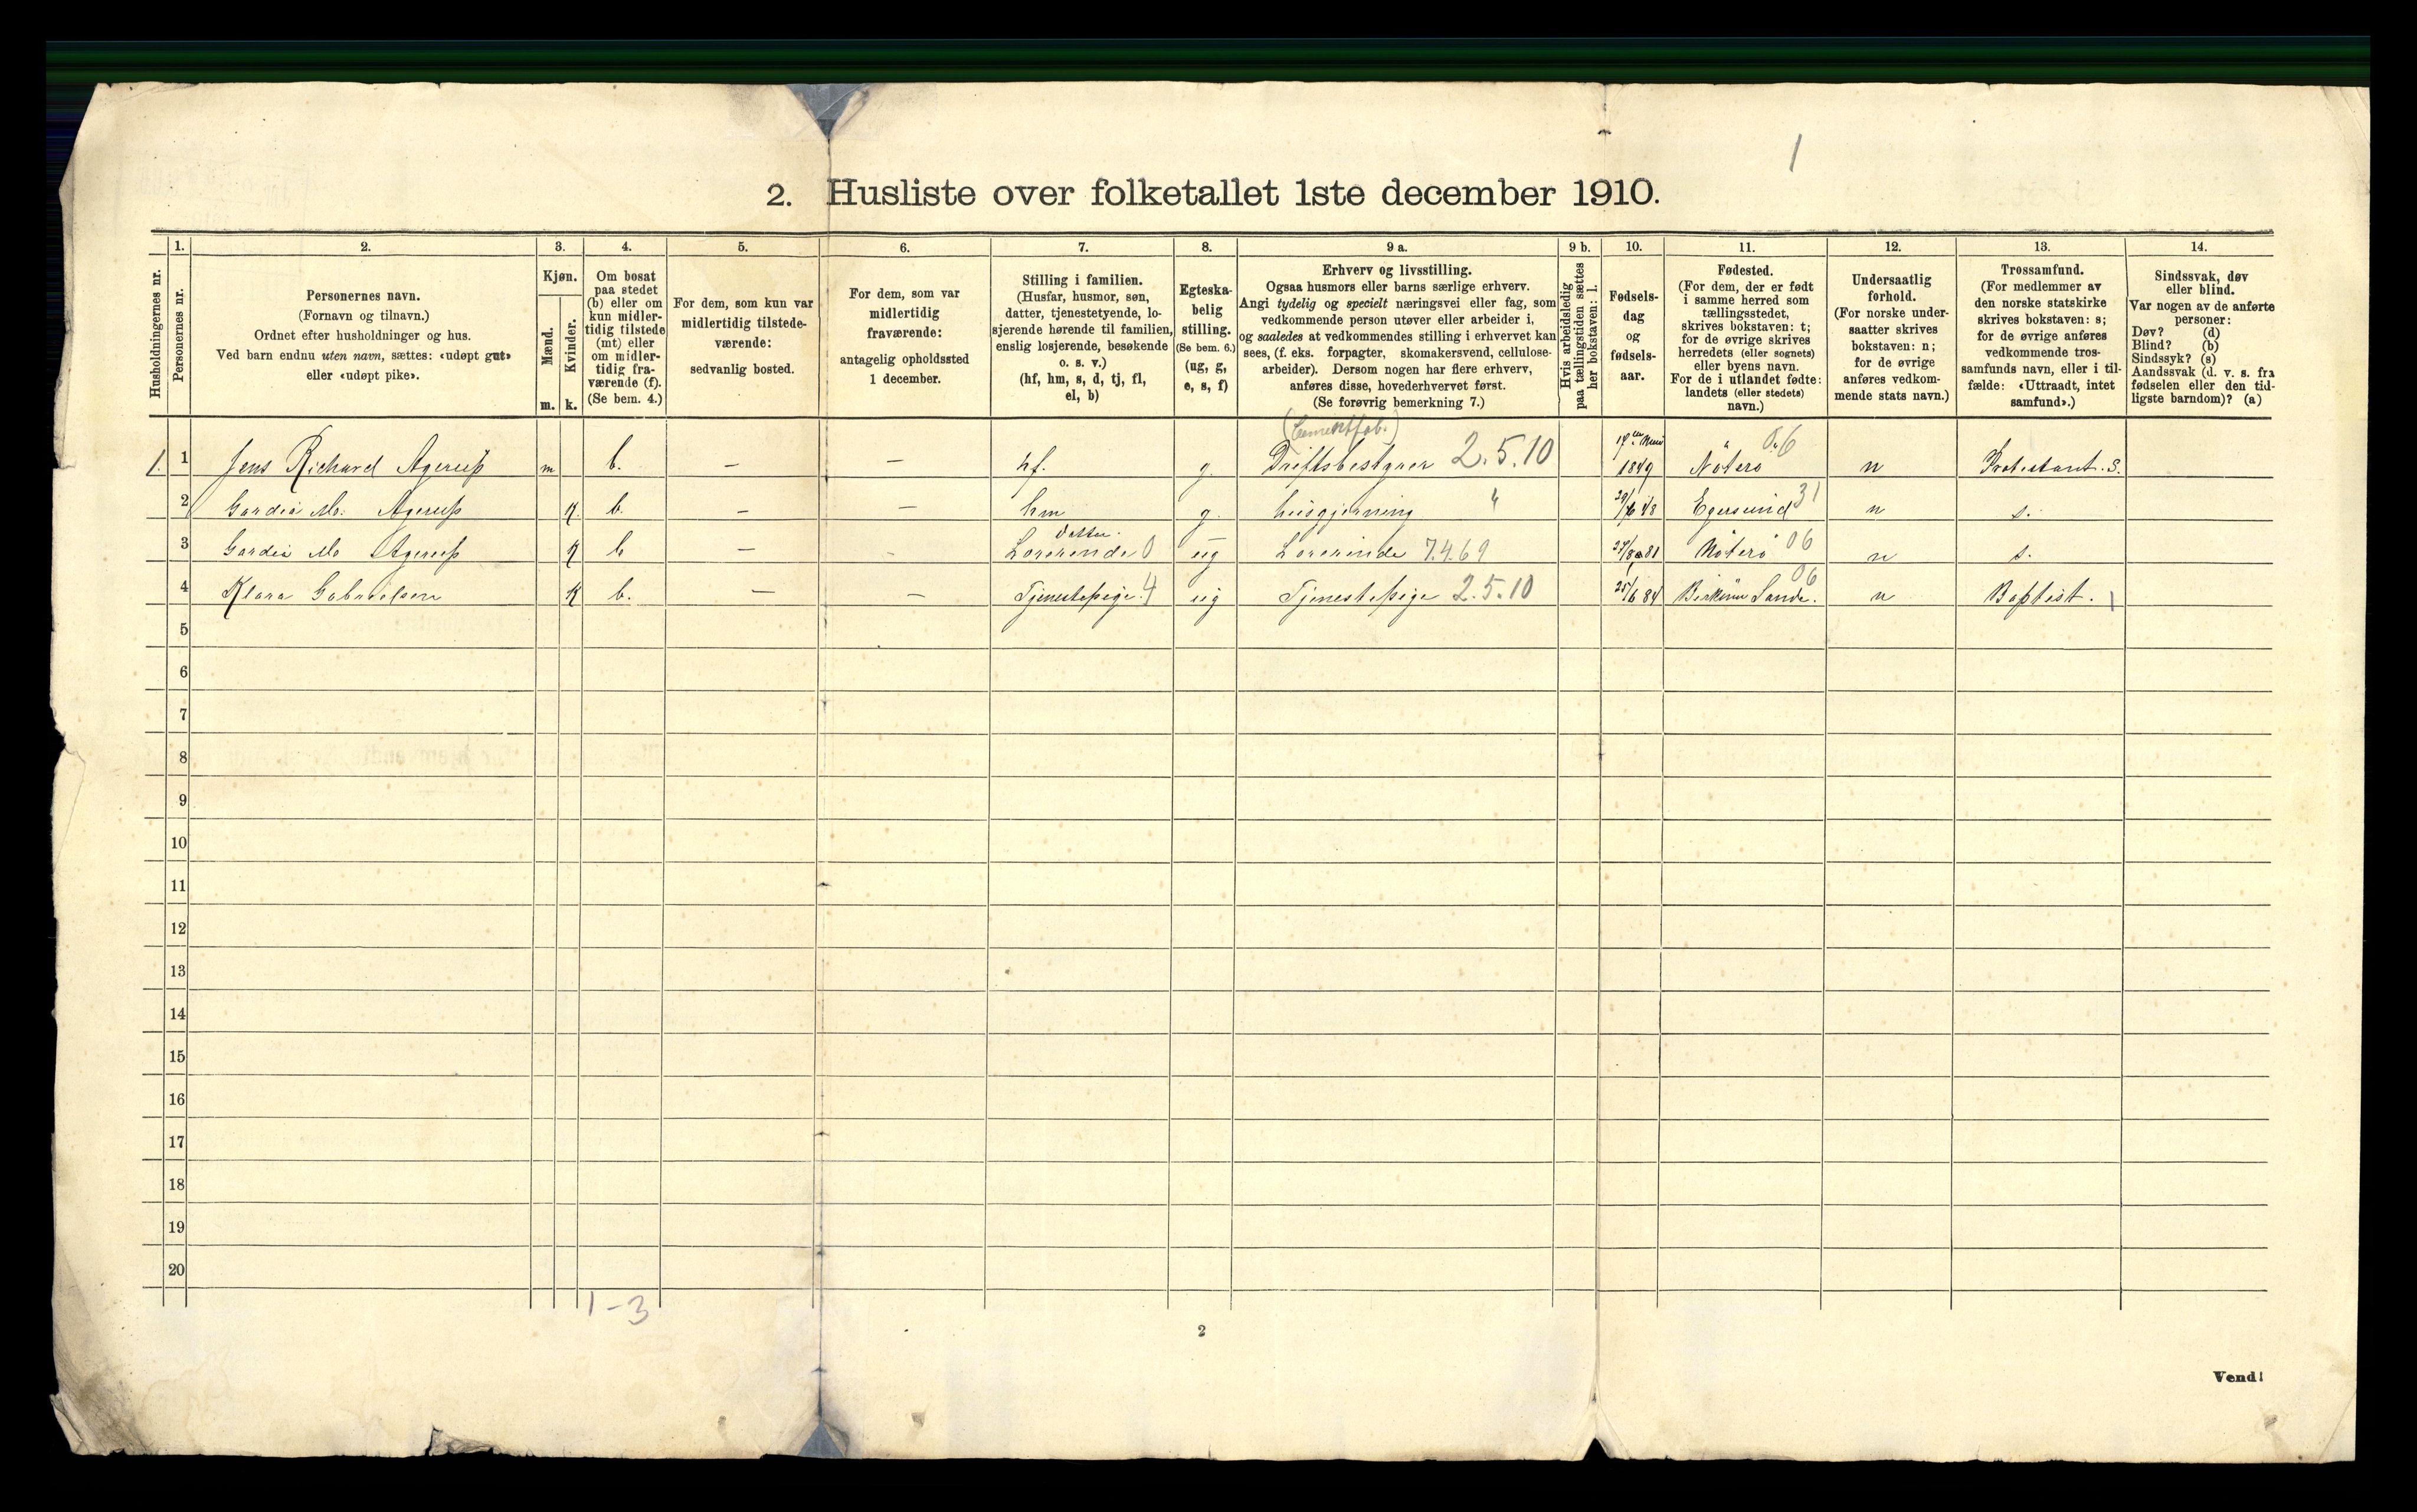 1
2. Husliste over folketallet 1ste december 1910.
1. 2. 3. 4. 5. 6. 7. 8. 9 a. 9 b. 10. 11. 12. 13. 14.
Husholdningernes nr.
Personernes nr.
Personernes navn.
(Fornavn og tilnavn.)
Ordnet efter husholdninger og hus.
Ved barn endnu uten navn, sættes: «udøpt gut»
eller «udøpt pike».
Kjøn.
Mænd.
Kvinder.
m. k.
Om bosat
paa stedet
(b) eller om
kun midler-
tidig tilstede
(mt) eller
om midler-
tidig fra-
værende (f).
(Se bem. 4.)
For dem, som kun var
midlertidig tilstede-
værende:
sedvanlig bosted.
For dem, som var
midlertidig
fraværende:
antagelig opholdssted
1 december.
Stilling i familien.
(Husfar, husmor, søn,
datter, tjenestetyende, lo-
sjerende hørende til familien,
enslig losjerende, besøkende
o. s. v.)
(hf, hm, s, d, tj, fl,
el, b)
Egteska-
belig
stilling.
(Se bem. 6.)
(ug, g,
e, s, f)
Erhverv og livsstilling.
Ogsaa husmors eller barns særlige erhverv.
Angi tydelig og specielt næringsvei eller fag, som
vedkommende person utøver eller arbeider i,
og saaledes at vedkommendes stilling i erhvervet kan
sees, (f. eks. forpagter, skomakersvend, cellulose-
arbeider). Dersom nogen har flere erhverv,
anføres disse, hovederhvervet først.
(Se forøvrig bemerkning 7.)
Hvis arbeidsledig
paa tællingstiden sættes
her bokstaven: l.
Fødsels-
dag
og
fødsels-
aar.
Fødested.
(For dem, der er født
i samme herred som
tællingsstedet,
skrives bokstaven: t;
for de øvrige skrives
herredets (eller sognets)
eller byens navn.
For de i utlandet fødte:
landets (eller stedets)
navn.)
Undersaatlig
forhold.
(For norske under-
saatter skrives
bokstaven: n;
for de øvrige
anføres vedkom-
mende stats navn.)
Trossamfund.
(For medlemmer av
den norske statskirke
skrives bokstaven: s;
for de øvrige anføres
vedkommende tros-
samfunds navn, eller i til-
fælde: «Uttraadt, intet
samfund».)
Sindssvak, døv
eller blind.
Var nogen av de anførte
personer:
Døv? (d)
Blind? (b)
Sindssyk? (s)
Aandssvak (d. v. s. fra
fødselen eller den tid-
ligste barndom)? (a)
(Cementfab.)
1. 1 Jens Richard Agerup m b. – – hf. g. Driftsbestyrer 2.5.10 1849 Nøterø 06 n Protestant. s.
2 Agerup K. b. – – hm g. husgjerning " Egersund 31 n s.
Datter.
3 Agerup K b – - Lærerinde 0 ug Lærerinde 7.4.69 27/8 81 Nøterø 06 n s.
4 Klara Gabrielsen K b. – – Tjenestepige. 4 ug Tjenestepige 2.5.10 25/6 84 Sande. 06 n Baptist. 1
5
6
7
8
9
10
11
12
13
14
15
16
17
18
19
20
1-3
2
Vend!